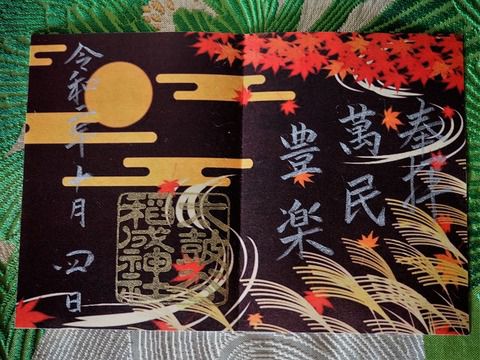 奉拝
萬民
豊楽
太鼓谷
稲成神社
令和二年十月四日